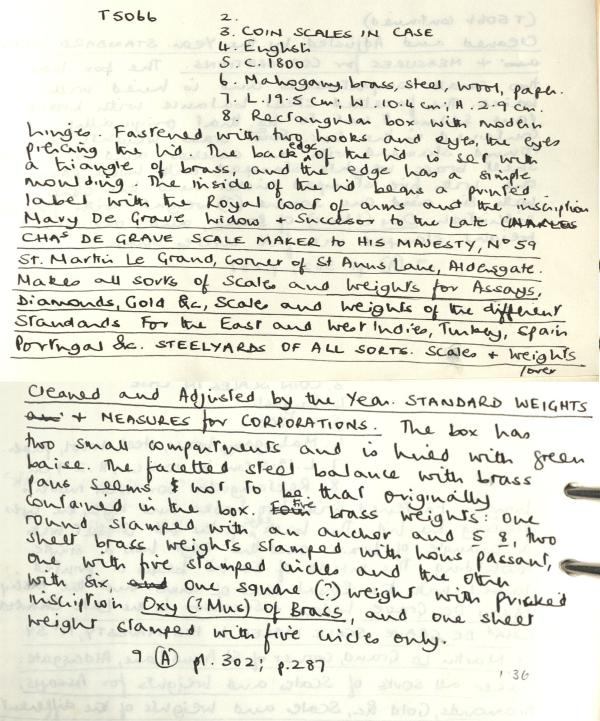 T5066
2.
3. COIN SCALES IN CASE
4. English
5. C. 1800
6. Mahogany, brass, steel, wool, paper.
7. L. 19.5 cm; W. 10.4 cm; H. 2.9 cm.
8. Rectangular box with modern
hinges. Fastened with two hooks and eyes, the eyes
piercing the lid. The back edge of the lid is set with
a triangle of brass, and the edge has a simple
moulding. The inside of the lid bears a printed
label with the Royal coat of arms and the inscription
Mary De Grave Widow + Succesor to the Late CHARLES
CHAS DE GRAVE SCALE MAKER to HIS MAJESTY, No 59
St. Martin Le Grand, corner of St Anns Lane, Aldersgate.
Makes all sorts of Scales and Weights for Assays,
Diamonds, Gold &c, Scales and Weights of the different
Standards For the East and West Indies, Turkey, Spain
Portugal &c. STEELYARDS OF ALL SORTS. Scales + Weights
/over
Cleaned and Adjusted by the Year. STANDARD WEIGHTS
+ MEASURES for CORPORATIONS. The box has
two small compartments and is lined with green
baise. The facetted steel balance with brass
pans seems not to be that originally
contained in the box. Four five brass weights: one
round stamped with an anchor and S 8, two
sheet brass weights stamped with lions passant,
one with five stamped circles and the other
with six, and one square (?) weight with pricked
inscription Oxy (? Mus) of Brass, and one sheet
weight stamped with five circles only.
9 (A) pl. 302; p. 287
1.36